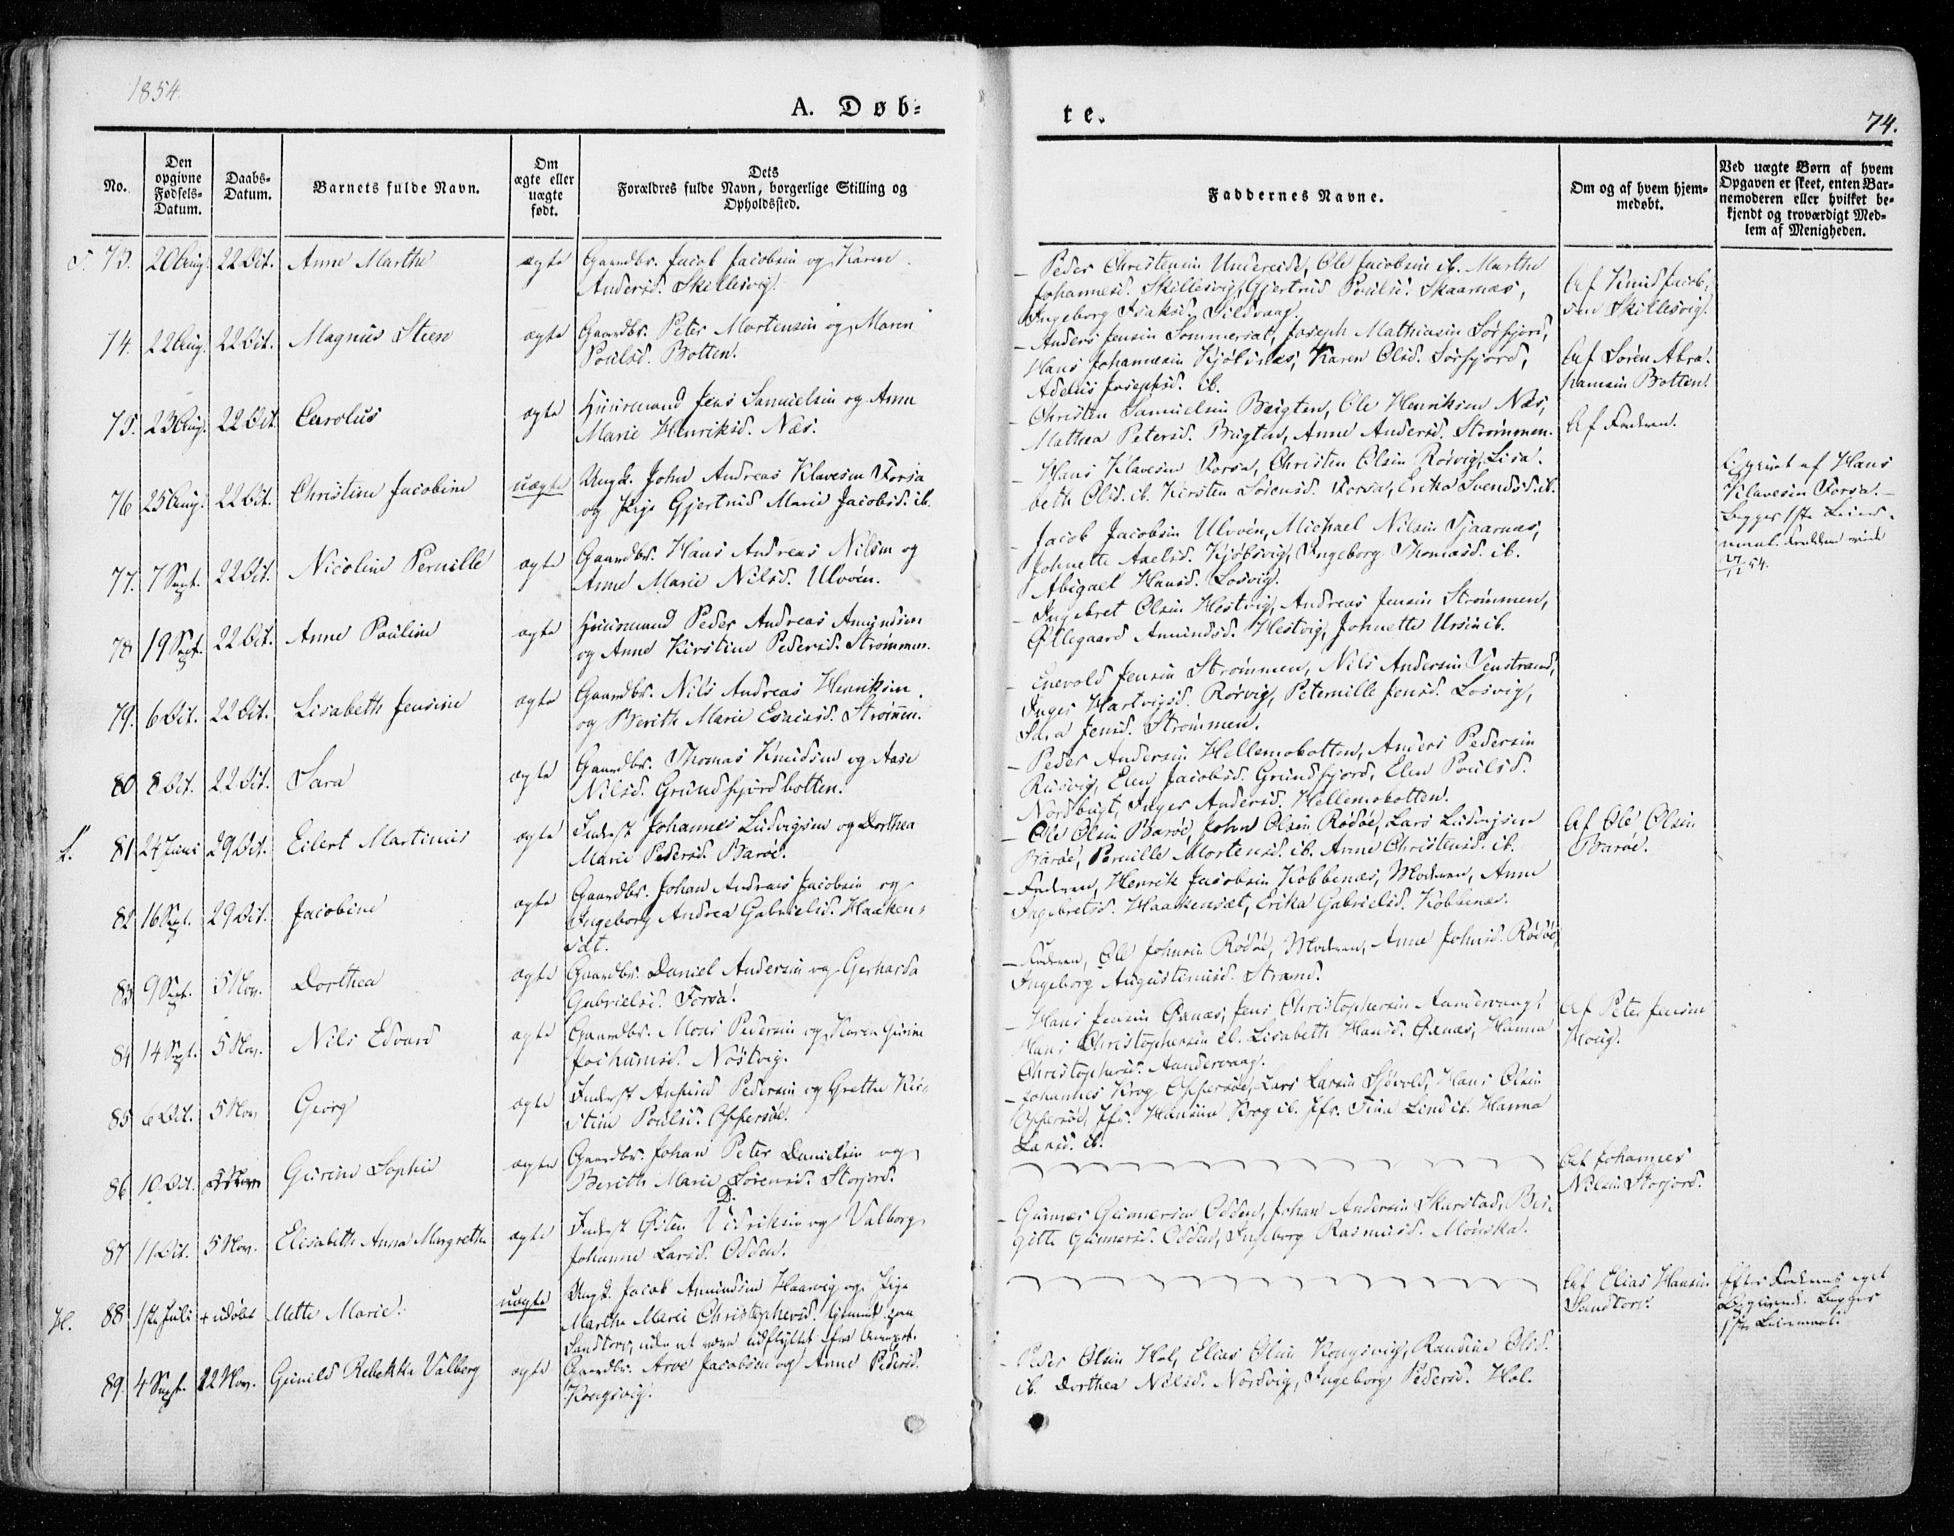 1854.
A. Døb-
te.
74.
No.
Den opgivne Fødsels-Datum.
Daabs-Datum.
Barnets fulde Navn.
Om ægte eller uægte født.
Dets Forældres fulde Navn, borgerlige Stilling og Opholdssted.
Faddernes Navne.
Om og af hvem hjemmedøbt.
Ved uægte Børn af hvem Opgaven er skeet, enten Barnemoderen eller hvilket bekjendt og troværdigt Medlem af Menigheden.
73. 20 Aug. 22 Oct. Anne Marthe ægte Gaardbr. Jacob Jacobsen og Karen
Andersd. Skillesvig.
Peder Christensen Undereide, Ole Jacobsen ib. Marthe
Johannesd. Skillesvig, Gjertrud Poulsd. Skaarnæs,
Ingeborg Isaksd. Sildvaag.
Af Knud Jacob-
sen Skillesvig.
74. 22 Aug. 22 Oct. Magnus Steen ægte Gaardbr. Peter Mortensen og Maren
Poulsd. Botten.
Anders Jensen Sommerset, Joseph Mathiasen Sørfjord,
Hans Johannesen Kjølnæs, Karen Olsd. Sørfjord,
Adelus Josephsd. ib.
Af Søren Abra-
hamsen Botten.
75. 23 Aug. 22 Oct. Carolus ægte Huusmand Jens Samuelsen og Anne
Marie Henriksd. Næs.
Christen Samuelsen Brugten, Ole Henriksen Næs,
Mathea Petersd. Brugten, Anne Andersd. Strømmen.
Af Faderen.
76 25 Aug. 22 Oct. Christine Jacobine uægte Ungk. John Andreas Klavesen Forsa
og Pige Gjertrud Marie Jacobsd. ib.
Hans Klavesen Forsa, Christen Olsen Rørvig, Lisa-
beth Olsd. ib. Kirsten Sørensd. Forsa, Erika Svendsd. ib.
Opgivet af Hans
Klavesen Forsa.
Begges 1ste Leier-
maal.
54.
77. 7 Sept. 22 Oct. Nicoline Pernille ægte Gaardbr. Hans Andreas Nilsen og
Anne Marie Nilsd. Ulvøen.
Jacob Jacobsen Ulvøen, Michael Nilsen Tjaarnæs,
Johnette Axelsd. Kjøbsvig, Ingeborg Thomasd. ib.
Abigael Hansd. Losvig.
78 19 Sept. 22 Oct. Anne Pouline ægte Huusmand Peder Andreas Amundsen
og Anne Kirstine Pedersd. Strømmen.
Ingebret Olsen Hestvig, Andreas Jensen Strømmen,
Øllegaard Amundsd. Hestvig, Johnette Ursin ib.
79. 6 Oct. 22 Oct. Lisabeth Jensine ægte Gaardbr. Nils Andreas Henriksen
og Berith Marie Esaiasd. Strømen.
Enevold Jensen Strømmen, Nils Andersen Tenstrand,
Inger Hartvigsd. Rørvig, Peternille Jensd. Losvig,
Sara Jensd. Strømmen.
80. 8 Oct. 22 Oct. Sara ægte Gaardbr. Thomas Knudsen og Aase
Nilsd. Grundfjordbotten.
Peder Andersen Hellemobotten, Anders Pedersen
Rusvig, Elen Jacobsd. Grundfjord, Elen Poulsd.
Nordbugt, Inger Andersd. Hellemobotten.
L. 81. 24 Juni 29 Oct. Eilert Martinus ægte Inderst Johannes Ludvigsen og Dorthea
Marie Pedersd. Barøe.
Ole Olsen Barøe, John Olsen Rødøe, Lars Ludvigsen
Barøe, Pernille Mortensd. ib. Anne Christensd. ib.
Af Ole Olsen
Barøe.
82 16 Sept. 29 Oct. Jacobine ægte Gaardbr. Johan Andreas Jacobsen og
Ingeborg Andrea Gabrielsd. Haaken-
sæt.
Faderen, Henrik Jacobsen Kobbenæs, Moderen, Anne
Ingebretsd. Haakensæt, Erika Gabrielsd. Kobbenæs.
83 9 Sept. 5 Nov. Dorthea ægte Gaardbr. Daniel Andersen og Gjerharda
Gabrielsd. Forsa.
Faderen, Ole Johnsen Rødøe, Moderen, Anne Johnsd. Rødøe,
Ingeborg Augustinusd. Strand.
84 14 Sept. 5 Nov. Nils Edvard ægte Gaardbr. Mons Pedersen og Karen Gurine
Jochumsd. Nøstvig.
Hans Jensen Qvænæs, Jens Christophersen Aandervaag,
Hans Christophersen ib. Lisabeth Hansd. Qvænæs, Hanna
Christophersd. Aandervaag.
Af Peter Jensen
Houg.
85 6 Oct. 5 Nov Georg ægte Inderst Amund Pedersen og Grethe Kir-
stine Poulsd. Offersøe.
Johannes Krog Offersøe, Lars Larsen Sjøvold, Hans Olsen
Offersøe, Jfr. Hansine Krog ib. Jfr. Tina Lind ib. Hanna
Larsd. ib.
86 10 Oct. 5 Nov Gurine Sophie ægte Gaardbr. Johan Peter Danielsen og
Berith Marie Sørensd. Storjord.
Af Johannes
Nilsen Storjord.
87 11 Oct. 5 Nov. Elisabeth Anna Margrethe ægte Inderst Østen Didriksen og Valborg
Johanne Larsd. Odden.
Gunner Gunnersen Odden, Johan Andersen Skarstad, Bir-
gitte Gunnersd. Odden, Ingeborg Rasmusd. Mørska.
H. 88 1ste Juli + udøbt Mette Marie. uægte Ungk. Jacob Amundsen Haarvig og Pige
Marthe Marie Christophersd.
Sandtorv, uden at være udflyttet fra
Af Elias Hansen
Sandtorv.
Efter Faderens eget
Opgivende. Begges
1ste Leiermaal.
89. 4 Sept. 12 Nov. Gunild Rebekka Valborg ægte Gaardbr. Arve Jacobsen og Anne Pedersd.
Kongsvig.
Peder Olsen Hol, Elias Olsen Kongsvig, Randine Olsd.
ib. Dorthea Nilsd. Nordvig, Ingeborg Pedersd. Hol.